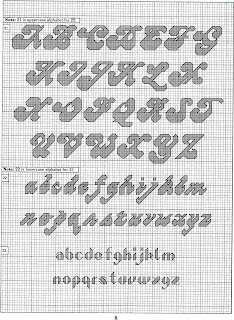 Note: 21 is uppercase alphabet for 22.
ABCDEFG
HIJKLM
NOPQRST
UVWXYZ
Note: 22 is lowercase alphabet for 21.
22.
abcdefghijklm
nopqrstuvwxyz
23.
abcdefghijklm
nopqrstuvwxyz